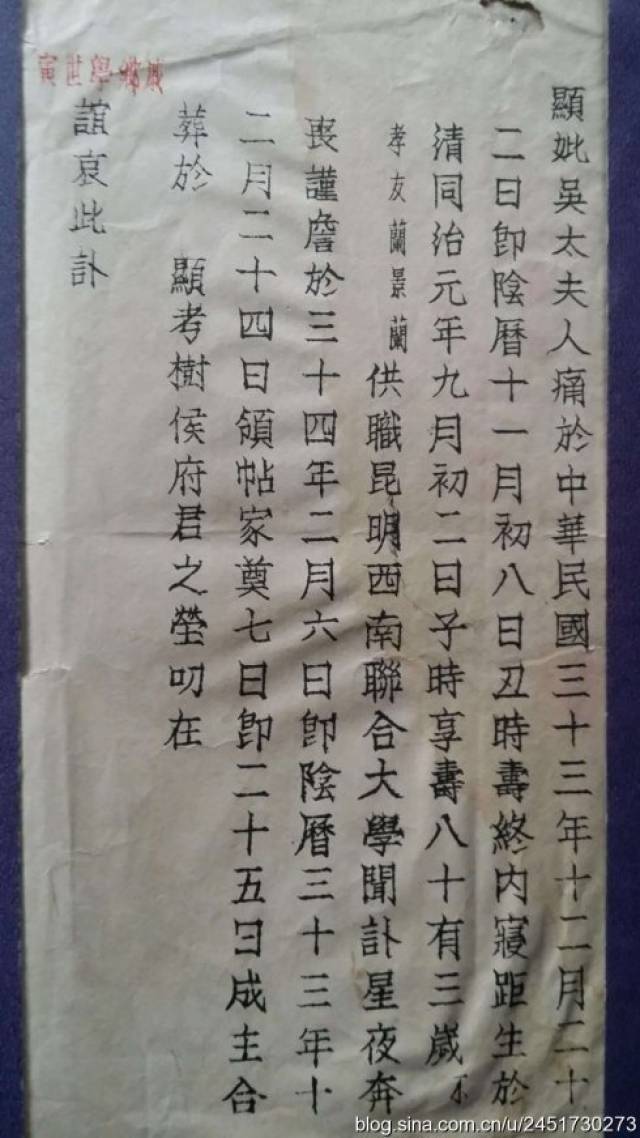 顯妣吳太夫人痛於中華民國三十三年十二月二十
二日卽陰曆十一月初八日丑時壽終內寢距生於
清同治元年九月初二日子時享壽八十有三歲不
孝友蘭景蘭供職昆明西南聯合大學聞訃星夜奔
喪謹詹於三十四年二月六日卽陰曆三十三年十
二月二十四日領帖家奠七日卽二十五日成主合
葬於 顯考樹侯府君之塋叨在
誼哀此訃
寅世學鄉戚
blog.sina.com.cn/u/2451730273